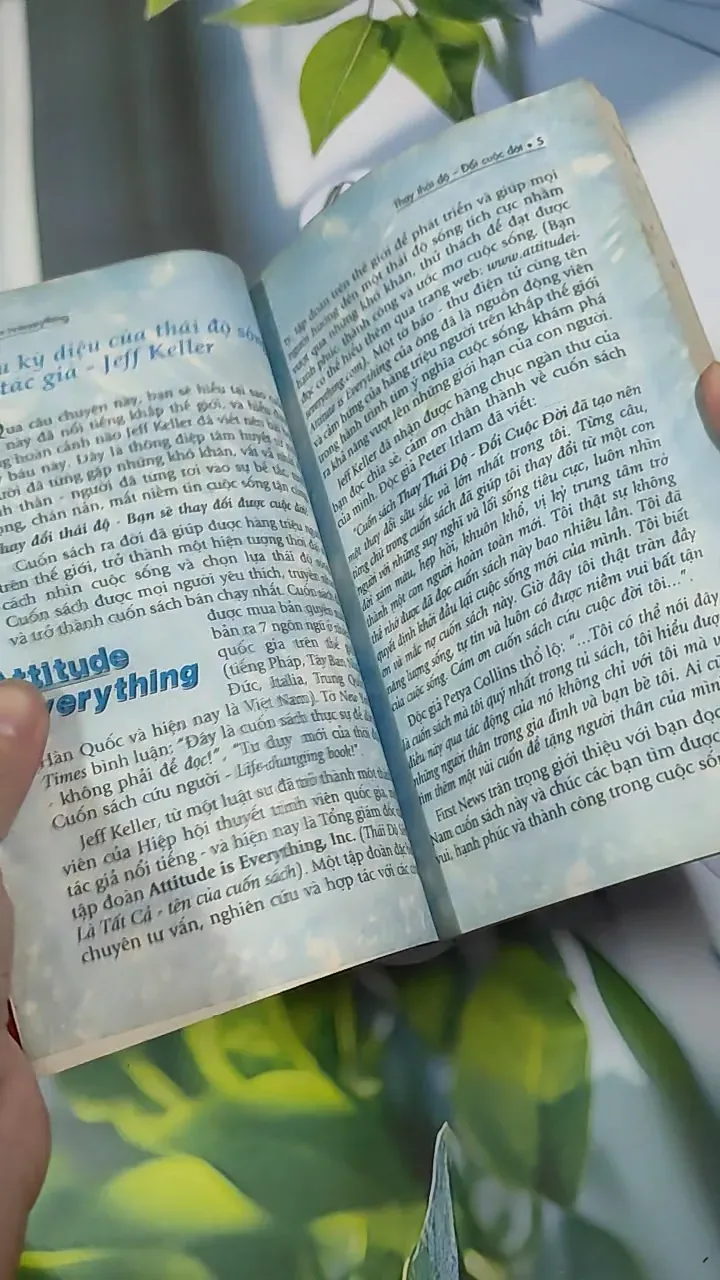 u kỳ diệu của thái độ sốn
tác giả - Jeff Keller
Qua câu chuyện này, bạn sẽ hiểu tại sao
này đã nổi tiếng khắp thế giới, và hiểu
hoàn cảnh nào Jeff Keller đã viết nên
báu này. Đây là thông điệp tâm huyết
đã từng gặp những khó khăn, vất vả
thần - người đã từng rơi vào sự bế tắc
chán nản, mất niềm tin cuộc sống tận
hay đổi thái độ - Bạn sẽ thay đổi được cuộc
Cuốn sách ra đời đã giúp được hàng triệu
trên thế giới, trở thành một hiện tượng thời
cách nhìn cuộc sống và chọn lựa thái độ
Cuốn sách được mọi người yêu thích, truyền
và trở thành cuốn sách bán chạy nhất. Cuốn
được mua bản quyền
bản ra 7 ngôn ngữ ở
quốc gia trên thế
(tiếng Pháp, Tây Ban
Đức, Italia, Trung
ttitude
verything
Hàn Quốc và hiện nay là Việt Nam). Tờ New
Times bình luận: "Đây là cuốn sách thực sự để
- không phải để đọc!" - "Tư duy mới của thời
Cuốn sách cứu người - Life-changing book!".
Jeff Keller, từ một luật sư đã trở thành một
viên của Hiệp hội thuyết trình viên quốc gia,
tác giả nổi tiếng - và hiện nay là Tổng giám đốc
tập đoàn Attitude is Everything, Inc. (Thái Độ
Là Tất Cả - tên của cuốn sách). Một tập đoàn
chuyên tư vấn, nghiên cứu và hợp tác với các
Thay thái độ - Đổi cuộc đời • 5
tập đoàn trên thế giới để phát triển và giúp mọi
người hướng đến một thái độ sống tích cực nhằm
vượt qua những khó khăn, thử thách để đạt được
hạnh phúc, thành công và ước mơ cuộc sống. (Bạn
đọc có thể hiểu thêm qua trang web: www.attitudei-
severything.com). Một tờ báo - thư điện tử cùng tên
Attitude is Everything của ông đã là nguồn động viên
và cảm hứng của hàng triệu người trên khắp thế giới
trong hành trình tìm ý nghĩa cuộc sống, khám phá
ra khả năng vượt lên những giới hạn của con người.
Jeff Keller đã nhận được hàng chục ngàn thư của
bạn đọc chia sẻ, cảm ơn chân thành về cuốn sách
của mình. Độc giả Peter Irlam đã viết:
"Cuốn sách Thay Thái Độ - Đổi Cuộc Đời đã tạo nên
một thay đổi sâu sắc và lớn nhất trong tôi. Từng câu,
từng chữ trong cuốn sách đã giúp tôi thay đổi từ một con
người với những suy nghĩ và lối sống tiêu cực, luôn nhìn
đời xám màu, hẹp hòi, khuôn khổ, vị kỷ trung tâm trở
thành một con người hoàn toàn mới. Tôi thật sự không
thể nhớ được đã đọc cuốn sách này bao nhiêu lần. Tôi đã
quyết định khởi đầu lại cuộc sống mới của mình. Tôi biết
ơn và mắc nợ cuốn sách này. Giờ đây tôi thật tràn đầy
năng lượng sống, tự tin và luôn có được niềm vui bất tận
của cuộc sống. Cám ơn cuốn sách cứu cuộc đời tôi...".
Độc giả Petya Collins thổ lộ: "...Tôi có thể nói đây
là cuốn sách mà tôi quý nhất trong tủ sách, tôi hiểu
điều này qua tác động của nó không chỉ với tôi mà
những người thân trong gia đình và bạn bè tôi. Ai
tìm thêm một vài cuốn để tặng người thân của
First News trân trọng giới thiệu với bạn đọc
Nam cuốn sách này và chúc các bạn tìm được
vui, hạnh phúc và thành công trong cuộc